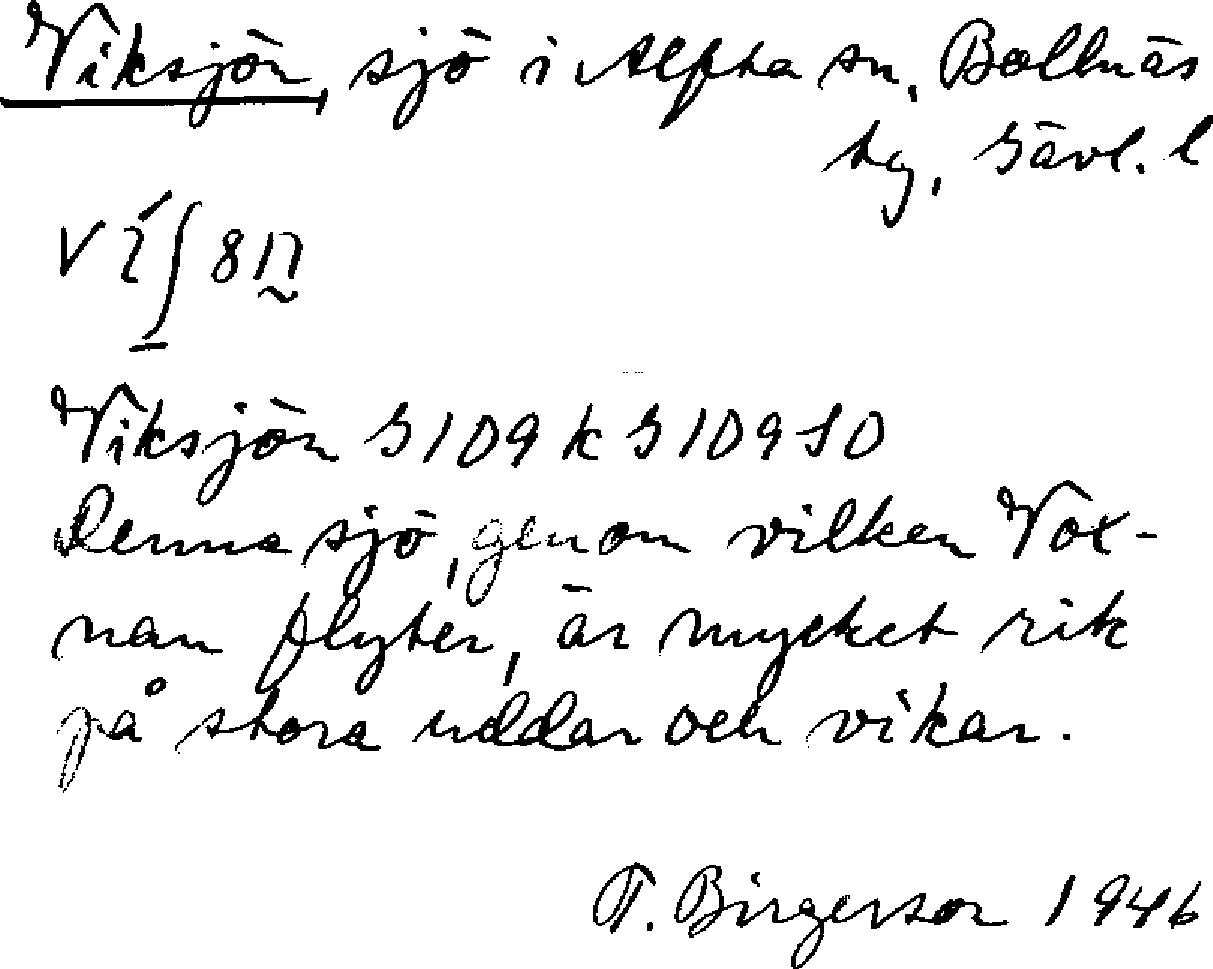 Viksjön, sjö i Alfta sn, Bollnäs
tg, Gävl. l
Viksjön G109 k G109 SO
Denna sjö, genom vilken Vox-
nan flyter, är mycket rik
på stora uddar och vikar.
T. Birgerson 1946